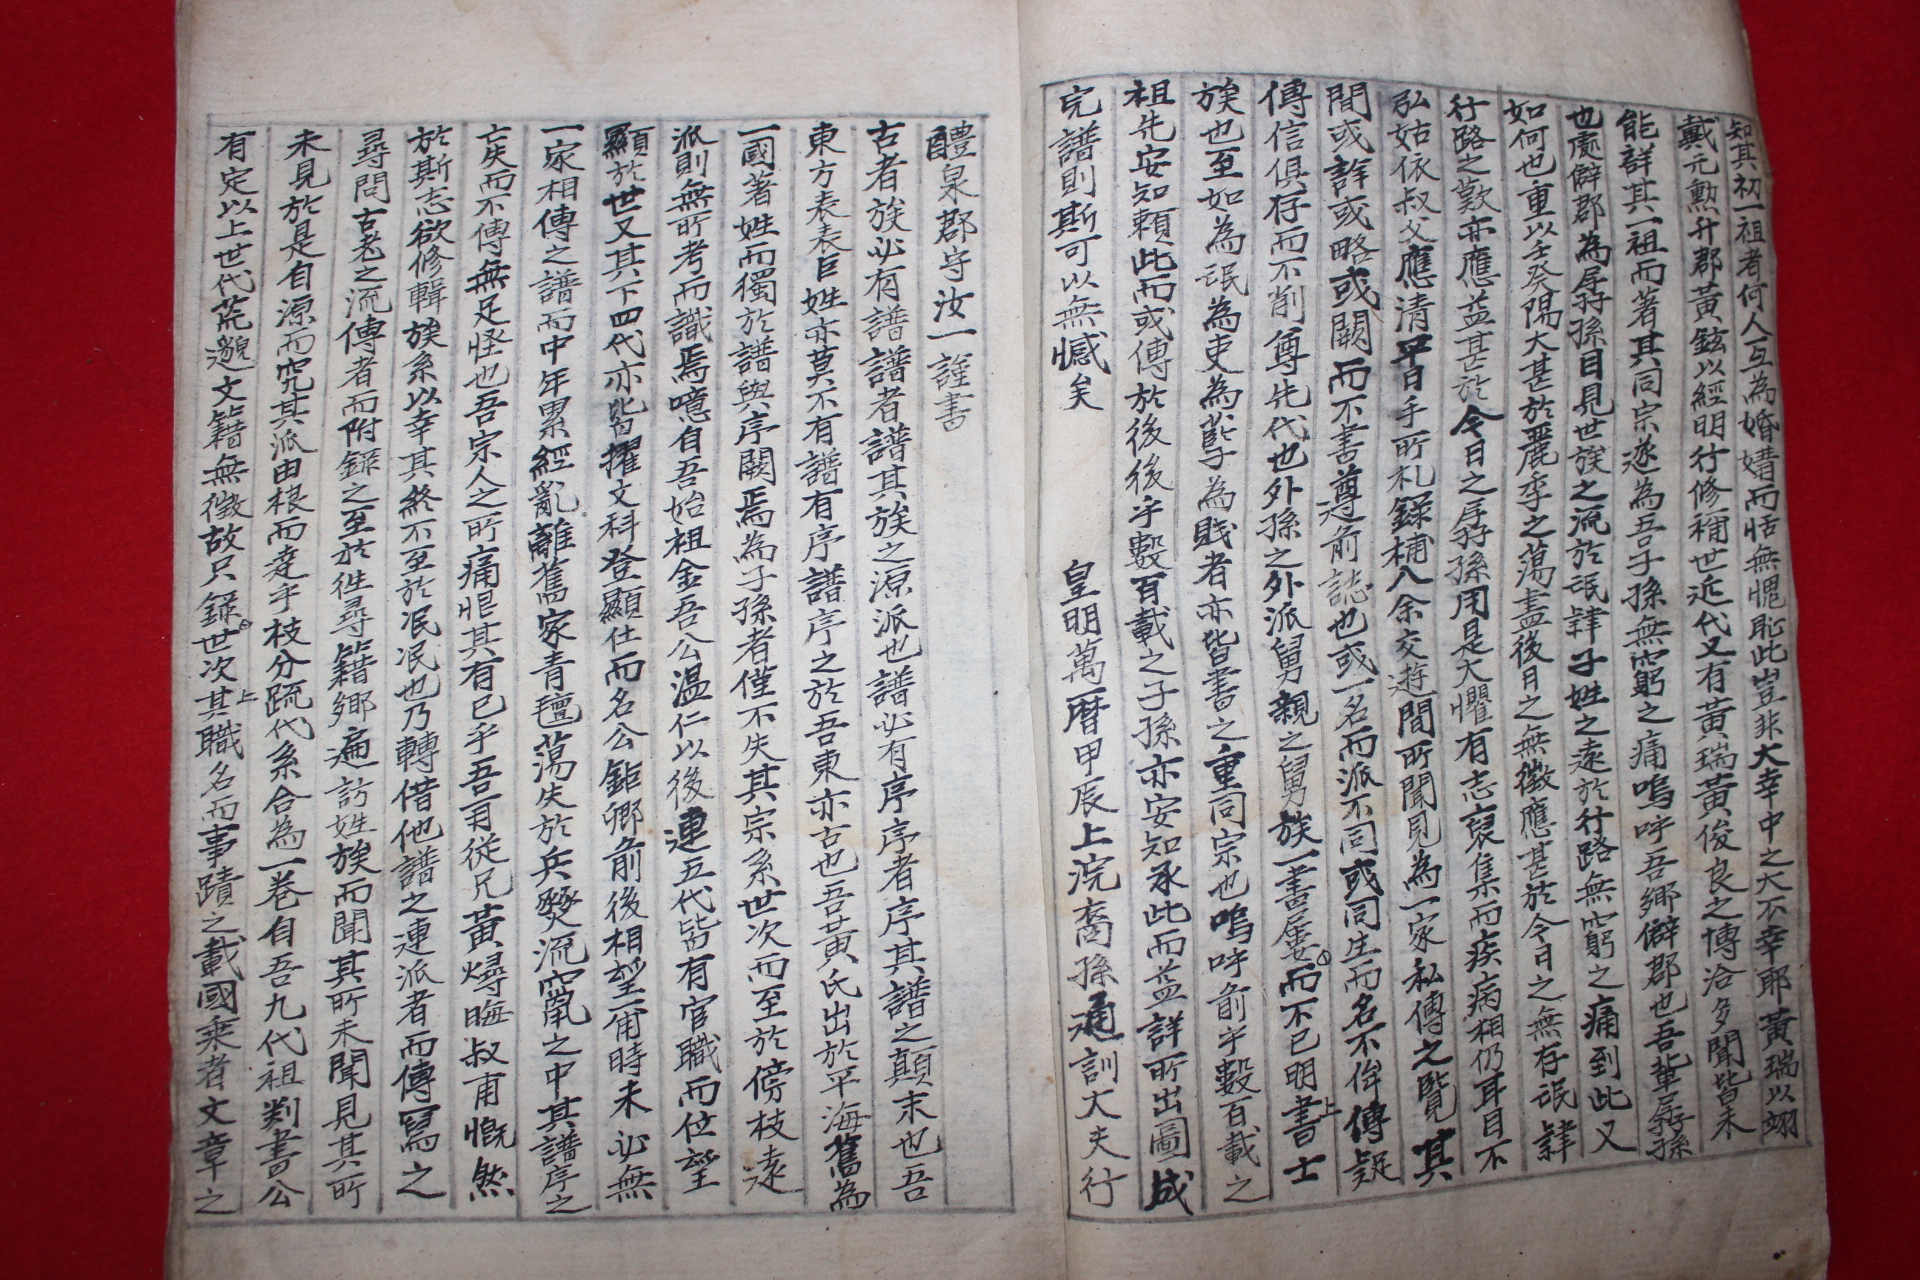 知其初一祖者何人互為婚媾而恬無愧恥此豈非大幸中之大不幸耶黃瑞以翊
戴元勲升郡黃鉉以經明行修補世近代又有黃瑞黃俊良之博洽多聞皆未
能詳其一祖而著其同宗遂為吾子孫無窮之痛嗚呼吾鄉僻郡也吾輩孱孫
也處僻郡為孱孫目見世族之流於氓肄子姓之遠於行路無窮之痛到此又
如何也重以壬癸陽大甚於麗季之蕩盡後日之無徵應甚於今日之無存氓肄
行路之歎亦應益甚於今日之孱孫用是大懼有志裒集而疾病相仍耳目不
弘姑依叔父應清平日手所札錄補八余交遊間所聞見為一家私傳之覽其
間或詳或略或闕而不書遵前誌也或一名而派不同或同庄而名不侔傳疑
傳信俱存而不削尊先代也外孫之外派舅親之舅族一書屢而不已明書士
族也至如為氓為吏為孽子為賎者亦皆書之重同宗也嗚呼前乎數百載之
祖先安知賴此而或傳於後後乎數百載之子孫亦安知承此而益詳所出圖成
完譜則斯可以無憾矣 皇明萬曆甲辰上浣裔孫通訓大夫行
醴泉郡守汝一謹書
古者族必有譜譜者譜其族之源派也譜必有序序者序其譜之顛末也吾
東方表表巨姓亦莫不有譜有序譜序之於吾東亦古也吾黃氏出於平海舊為
一國著姓而獨於譜與序闕焉為子孫者僅不失其宗系世次而至於傍枝遠
派則無所考而識焉噫自吾始祖金吾公溫仁以後連五代皆有官職而位望
顯於世又其下四代亦皆擢文科登顯仕而名公鉅卿前後相望甫時未必無
一家相傳之譜而中年累經亂離舊家青氊蕩失於兵燹流竄之中其譜序之
亡失而不傳無足怪也吾宗人之所痛恨其有已乎吾再從兄黃燖晦叔甫慨然
於斯志欲修輯族系以幸其終不至於泯泯也乃轉借他譜之連派者而傳寫之
尋問古老之流傳者而附錄之至於徃尋籍鄉遍訪姓族而聞其所未聞見其所
未見於是自源而究其派由根而達乎枝分疏代系合為一巻自吾九代祖判書公
有定以上世代荒邈文籍無徵故只錄世次其職名而事蹟之載國乘者文章之